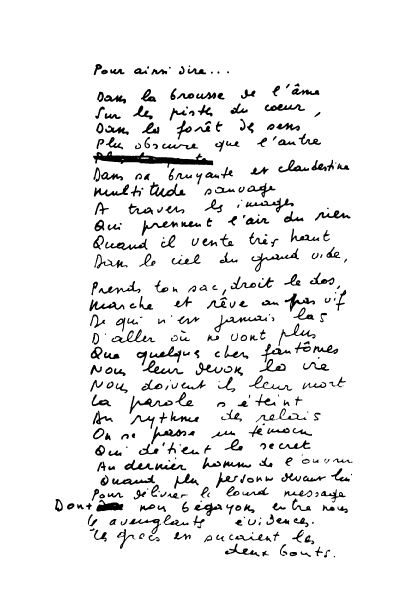 Pour ainsi dire...
Dans la brousse de l'âme
Sur les pistes du cœur,
Dans la forêt des sens
Plus obscure que l'autre
Dans sa bruyante et clandestine
multitude sauvage
A travers les images
Qui prennent l'air du rien
Quand il vente très haut
Dans le ciel du grand vide,
Prends ton sac, droit le dos,
marche et rêve au pas vif
De qui n'est jamais las
D'aller où ne vont plus
Que quelques chers fantômes
Nous leur devons la vie
Nous doivent ils leur mort
La parole s'éteint
Au rythme des relais
On se passe un témoin
Qui détient le secret
Au dernier homme de l'ouvrir
Quand plus personne devant lui
Pour délivrer le lourd message
Dont nous bégayons entre nous
les aveuglantes évidences.
Les grecs en suçaient les
deux bouts.